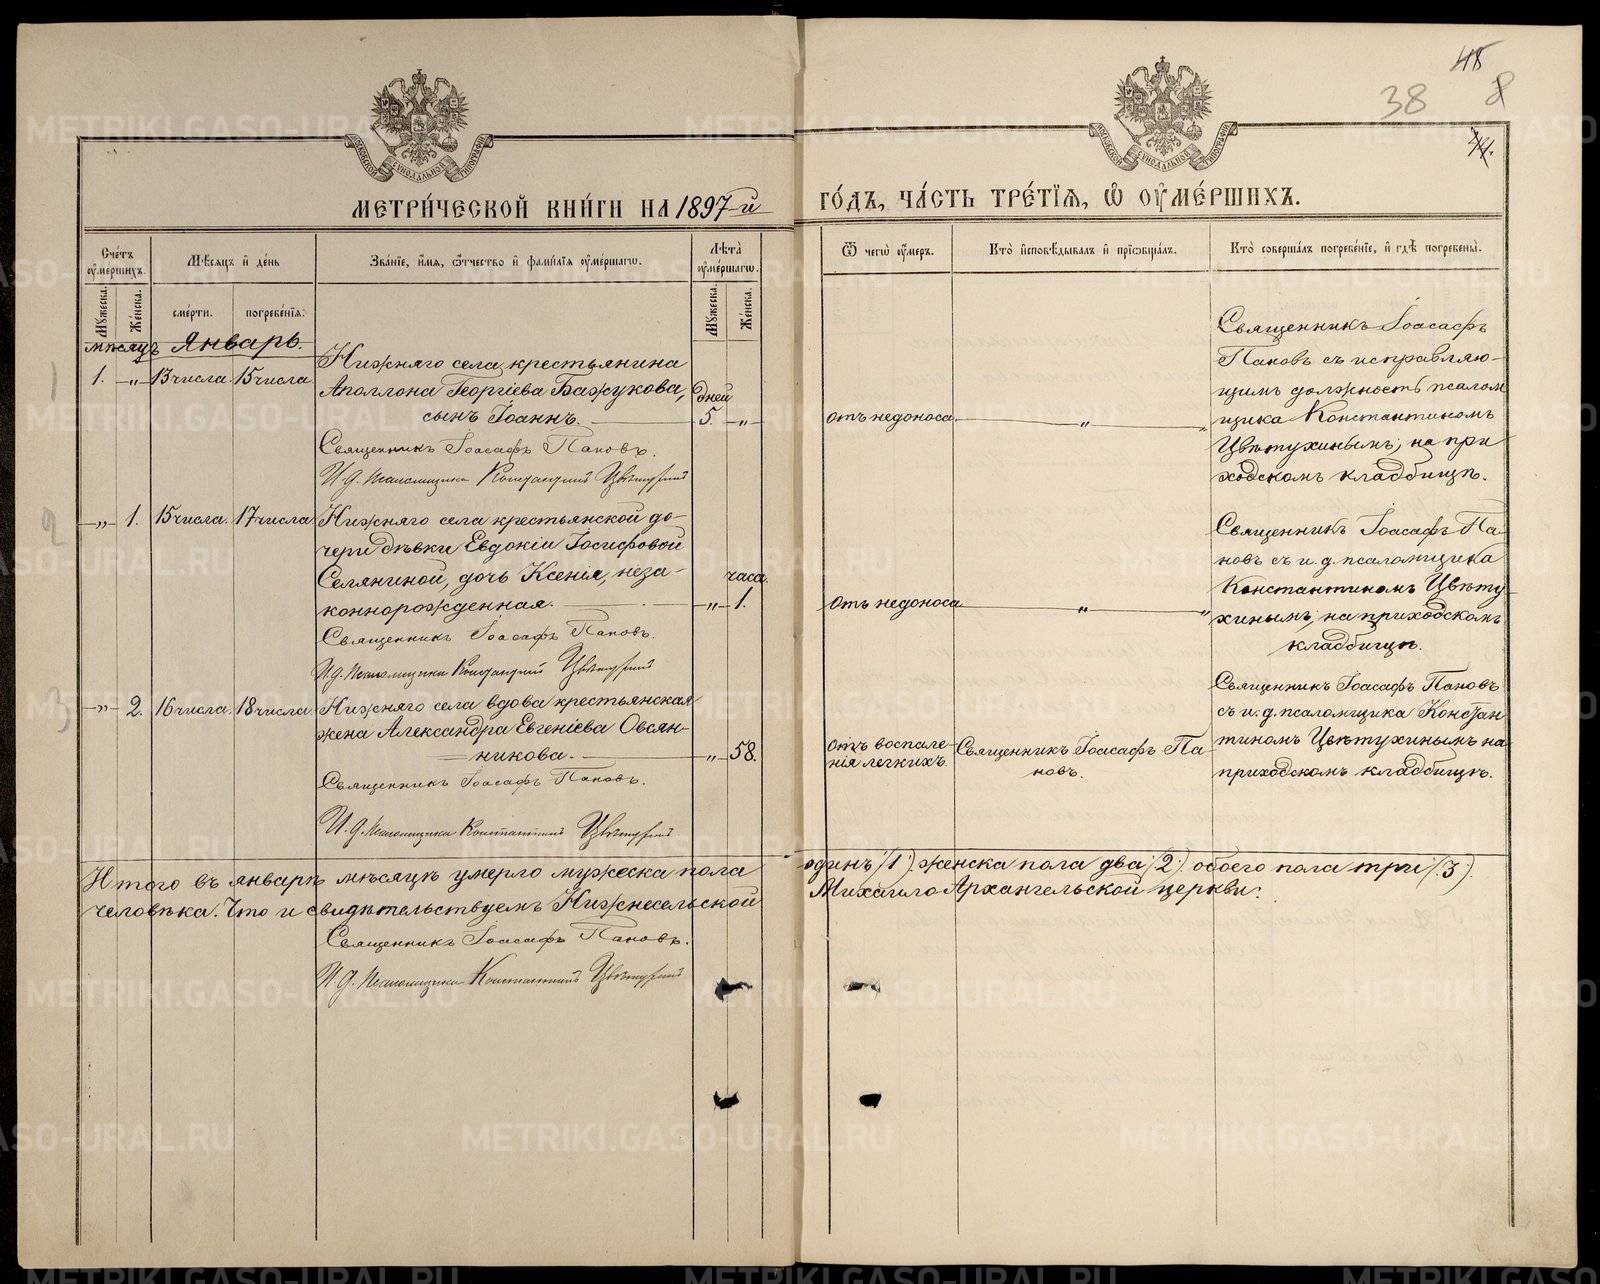 45
38
8
44.
МОСКОВСКОЙ СѴНОДАЛЬНОЙ ТИПОГРАФІИ
МОСКОВСКОЙ СѴНОДАЛЬНОЙ ТИПОГРАФІИ
МЕТРИ́ЧЕСКОЙ КНИ́ГИ НА 1897-й
ГО́ДЪ, ЧА́СТЬ ТРЕ́ТІѦ, Ѡ ОУМЕ́РШИХЪ.
Сче́тъ оуме́ршихъ.
Мужеска.
Же́нска.
Мѣ́сяцъ и де́нь
сме́рти.
погребе́нїя.
Зва́нїе, и́мя, ѻ҆́тчество и фами́лїя оуме́ршагѡ.
Лѣта̀ оуме́ршагѡ.
Мужеска.
Же́нска.
Ѿ чегѡ̀ оу́меръ.
Кто̀ исповѣ́дывалъ и прїѡбща́лъ.
Кто̀ соверша́лъ погребе́нїе, и гдѣ̀ погребены̀.
мѣсяцъ Январь.
1
1. -„- 13 числа. 15 числа.
Нижняго села крестьянина
Аполлона Георгіева Бажукова,
сынъ Іоаннъ.
дней
5. -„-
Священникъ Іоасафъ Пановъ.
И. д. псаломщика Константинъ Цвѣтухинъ
отъ недоноса.
„
Священникъ Іоасафъ
Пановъ съ исправляю-
щимъ должность псалом
щика Константиномъ
Цвѣтухинымъ, на при
ходскомъ кладбищѣ.
2
-„- 1. 15 числа. 17 числа
Нижняго села крестьянской до-
чери дѣвки Евдокіи Іосифовой
Селяниной, дочь Ксенія, неза-
коннорожденная.
часа.
-„- 1.
Священникъ Іоасафъ Пановъ.
И. д. псаломщика Константинъ Цвѣтухинъ
отъ недоноса
„
Священникъ Іоасафъ Па-
новъ съ и. д. псаломщика
Константиномъ Цвѣту
хинымъ, на приходскомъ
кладбищѣ.
3
-„- 2. 16 числа. 18 числа.
Нижняго села вдова крестьянская
жена Александра Евгеніева Овсян-
никова.
-„- 58.
Священникъ Іоасафъ Пановъ.
И. д. псаломщика Константинъ Цвѣтухинъ
отъ воспале-
нія легкихъ.
Священникъ Іоасафъ Па
новъ.
Священникъ Іоасафъ Пановъ
съ и. д. псаломщика Констан
тиномъ Цвѣтухинымъ на
приходскомъ кладбищѣ.
Итого въ январѣ мѣсяцѣ умерло мужеска пола
одинъ (1). женска пола два (2). обоего пола три (3).
человѣка. Что и свидѣтельствуемъ Нижнесельской
Михаило Архангельской церкви:
Священникъ Іоасафъ Пановъ.
И. д. псаломщика Константинъ Цвѣтухинъ
METRIKI.GASO-URAL.RU